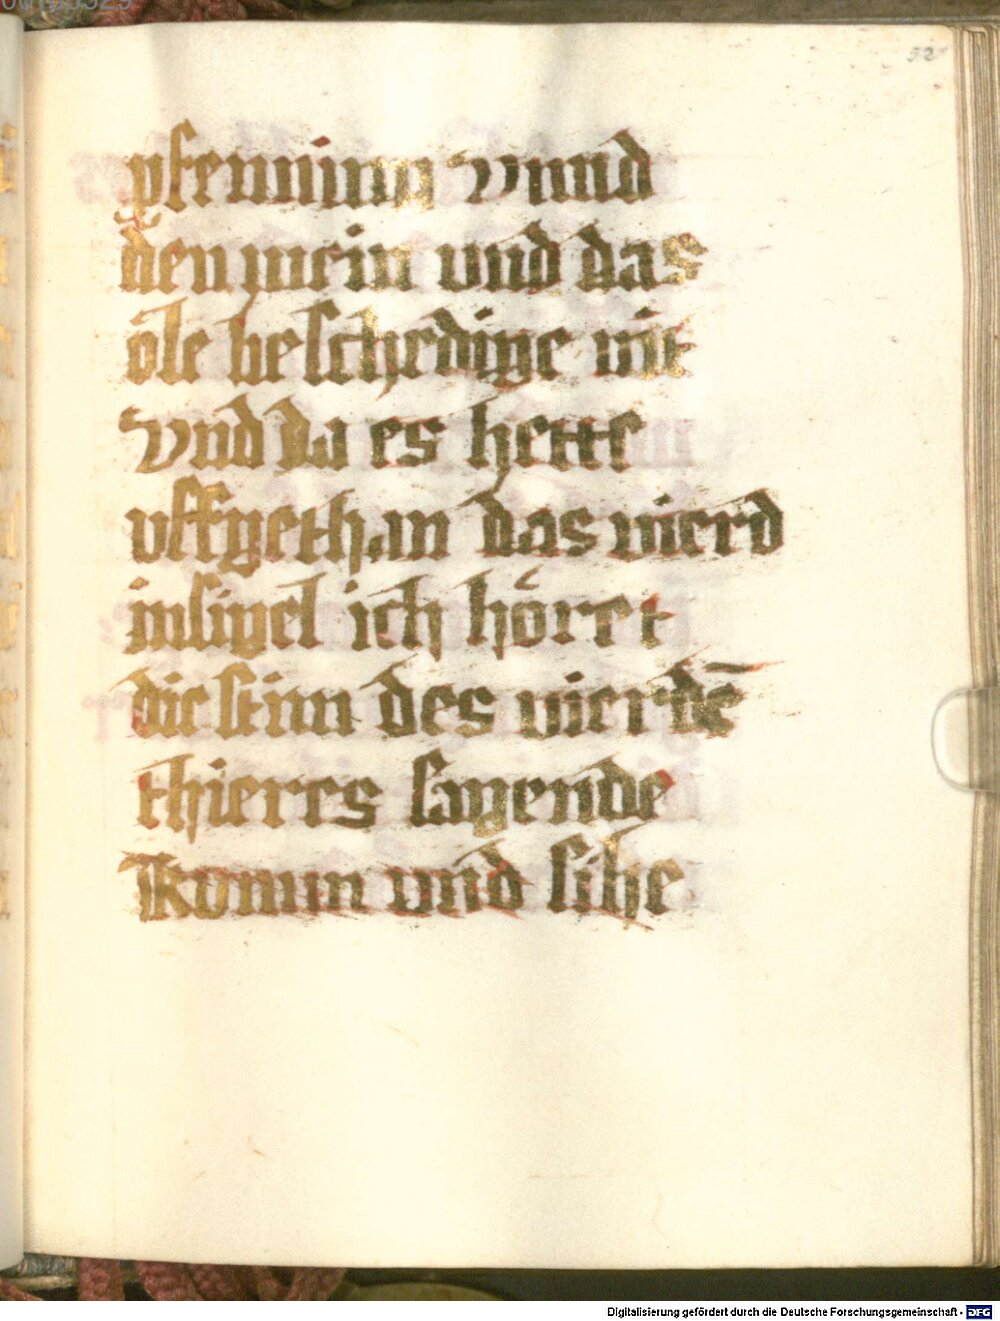 52
pfenning vnnd
den wein und das
öle beschedige nit
Vnd da es hette
vffgethan das vierd
insigel ich höret
die stim des vierdē
thieres sagende
Komm und sihe
Digitalisierung gefördert durch die Deutsche Forschungsgemeinschaft - DFG